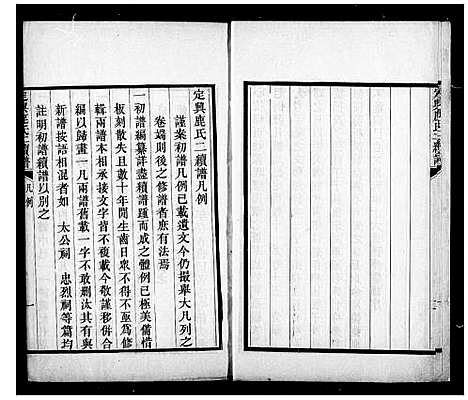 定興鹿氏二續譜凡例
謹案初譜凡例已載遺文今仍撮舉大凡列之
卷端則後之修譜者庶有法焉
一初譜編纂詳盡續譜踵而成之體例已極美備惜
板刻散失且數十年間生齒日衆不得不亟爲修
輯兩譜本相承接文字皆不複載今敬謹移併合
編以歸畫一凡兩譜舊載一字不敢刪汰其有與
新譜按語相混者如 太公祠 忠烈祠等篇均
註明初譜續譜以別之
凡例
定興鹿氏二續譜